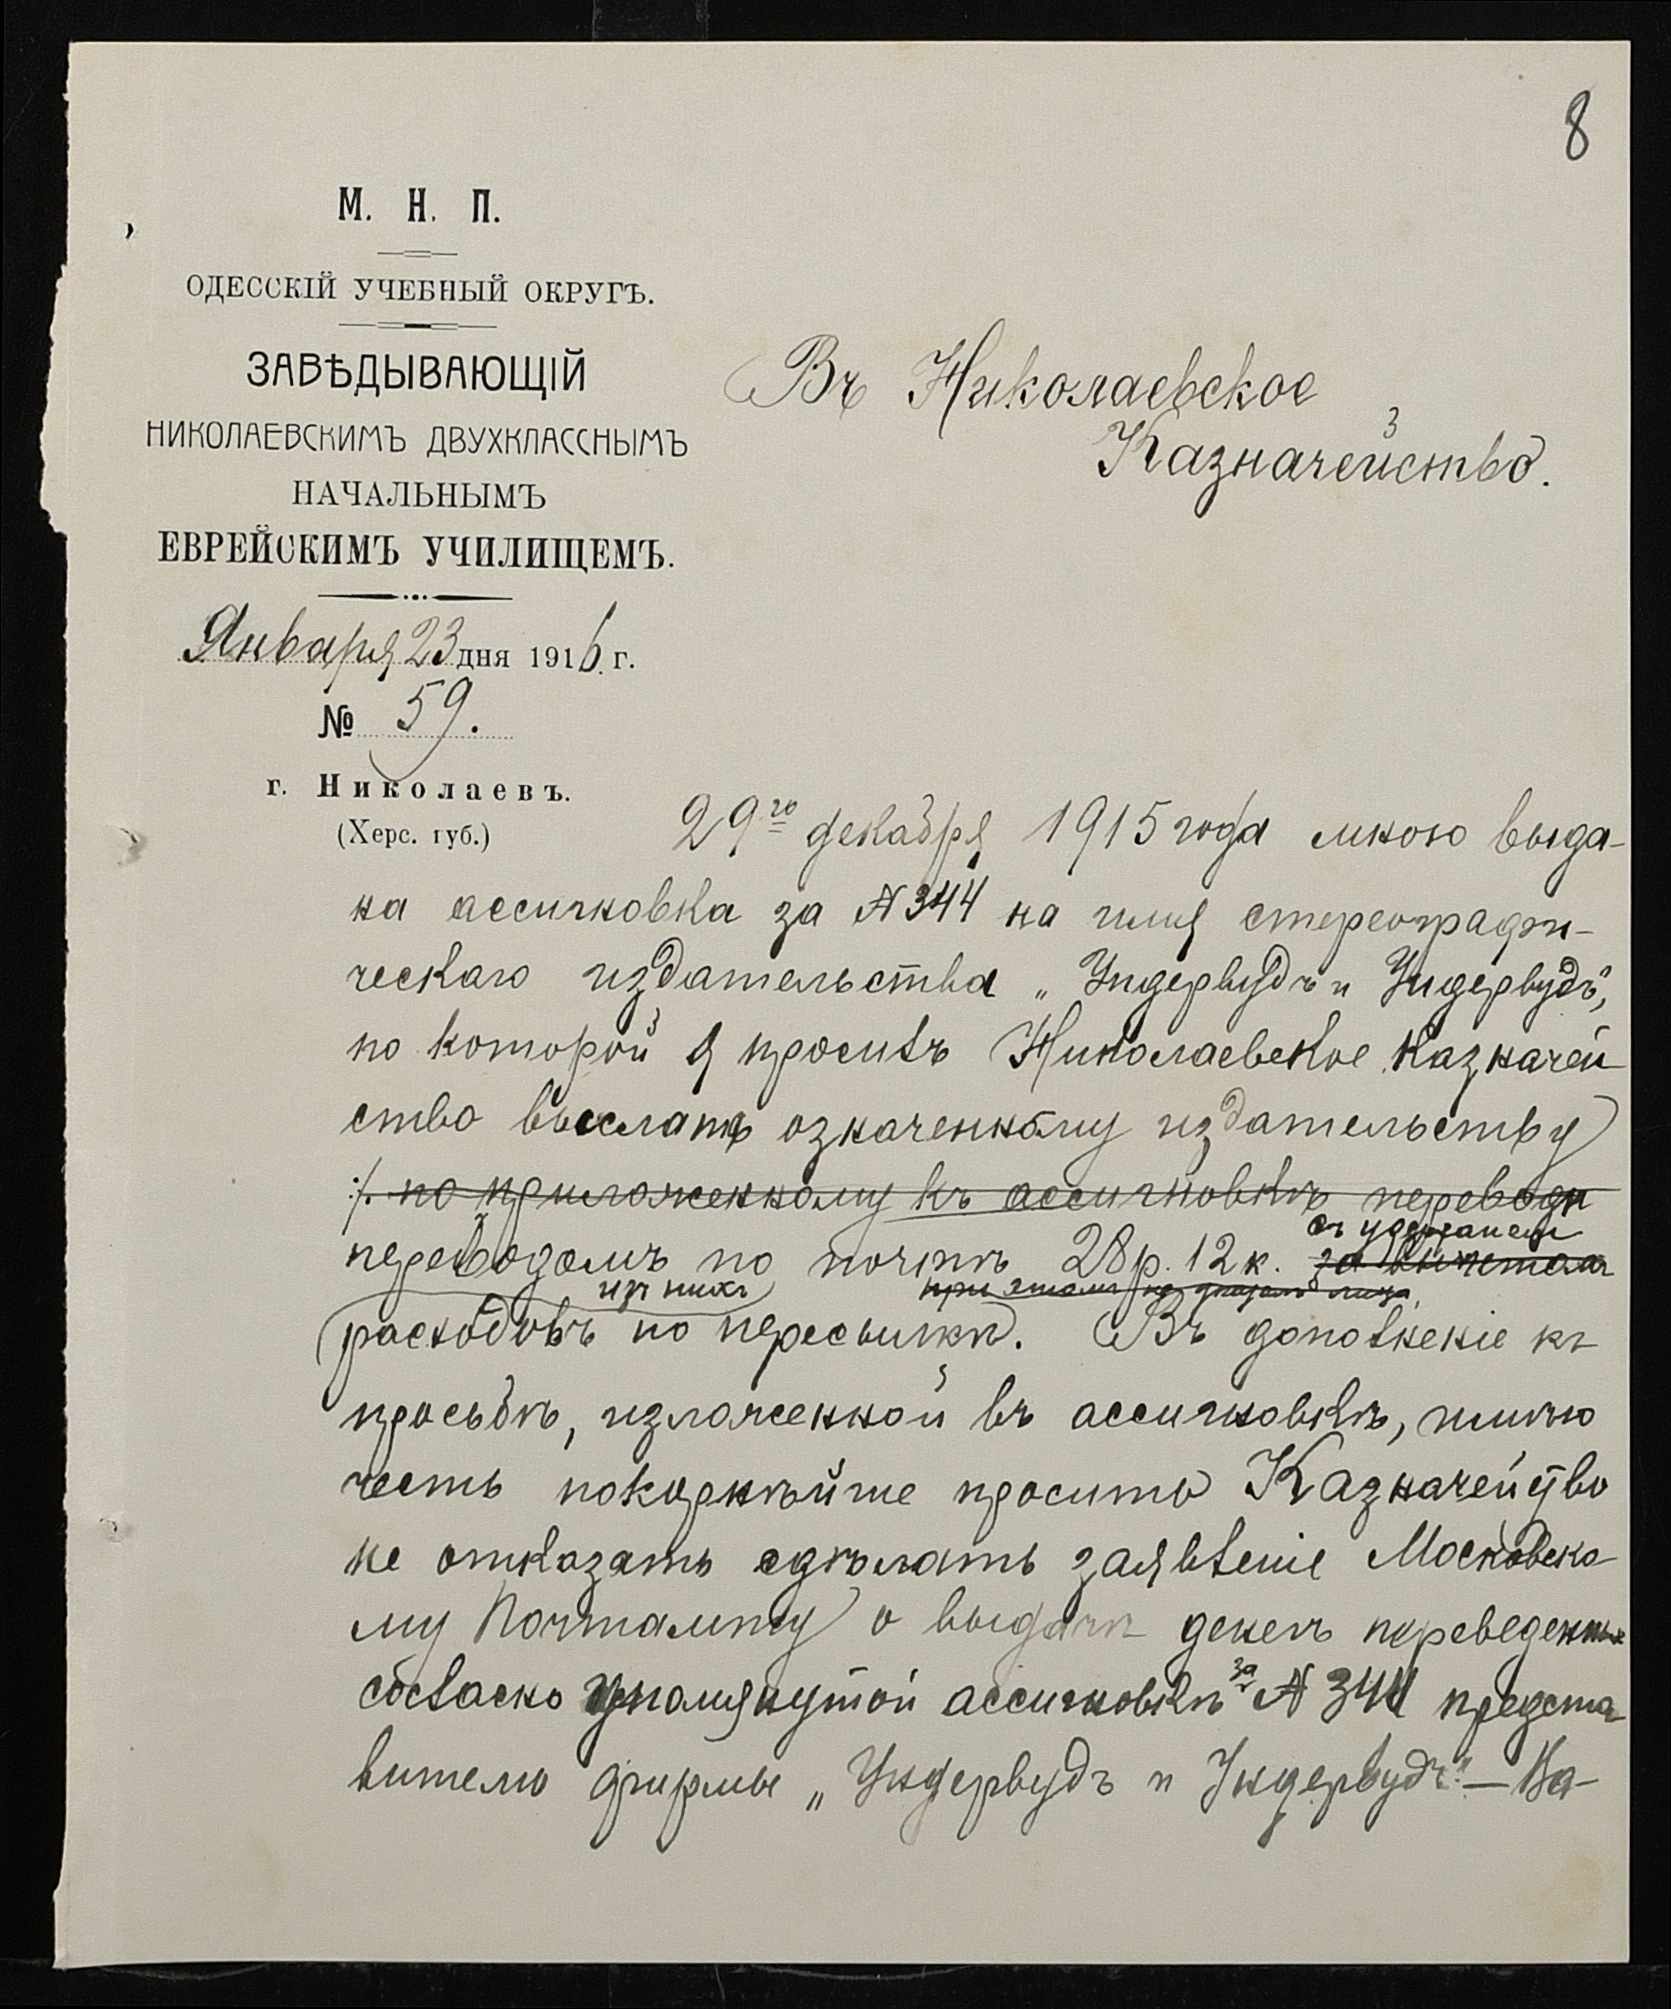 8
М. Н. П.
ОДЕССКІЙ УЧЕБНЫЙ ОКРУГЪ.
ЗАВѢДЫВАЮЩІЙ
НИКОЛАЕВСКИМЪ ДВУХКЛАССНЫМЪ
НАЧАЛЬНЫМЪ
ЕВРЕЙСКИМЪ УЧИЛИЩЕМЪ.
Января 23 дня 1916 г.
№ 59.
г. Николаевъ.
(Херс. губ.)
Въ Николаевское
Казначейство.
29го декабря 1915 года мною выда-
на ассигновка за № 344 на имя стереографи-
ческаго издательства „Ундервудъ и Ундервудъ",
по которой я просилъ Николаевское Казначей
ство выслать означенному издательству
по приложенному къ ассигновкѣ
съ удержаніем
переводомъ по почтѣ 28 р. 12 к. за вычетомъ
изъ нихъ
расходовъ по пересылкѣ. Въ дополненіе къ
просьбѣ, изложенной въ ассигновкѣ, имѣю
честь покорнѣйше просить Казначейство
не отказать сдѣлать заявленіе Московско-
му Почтамту о выдачѣ денегъ переведенных
согласно упомянутой ассигновкѣ за № 344 предста
вителю фирмы „Ундервудъ и Ундервудъ" – Ва-